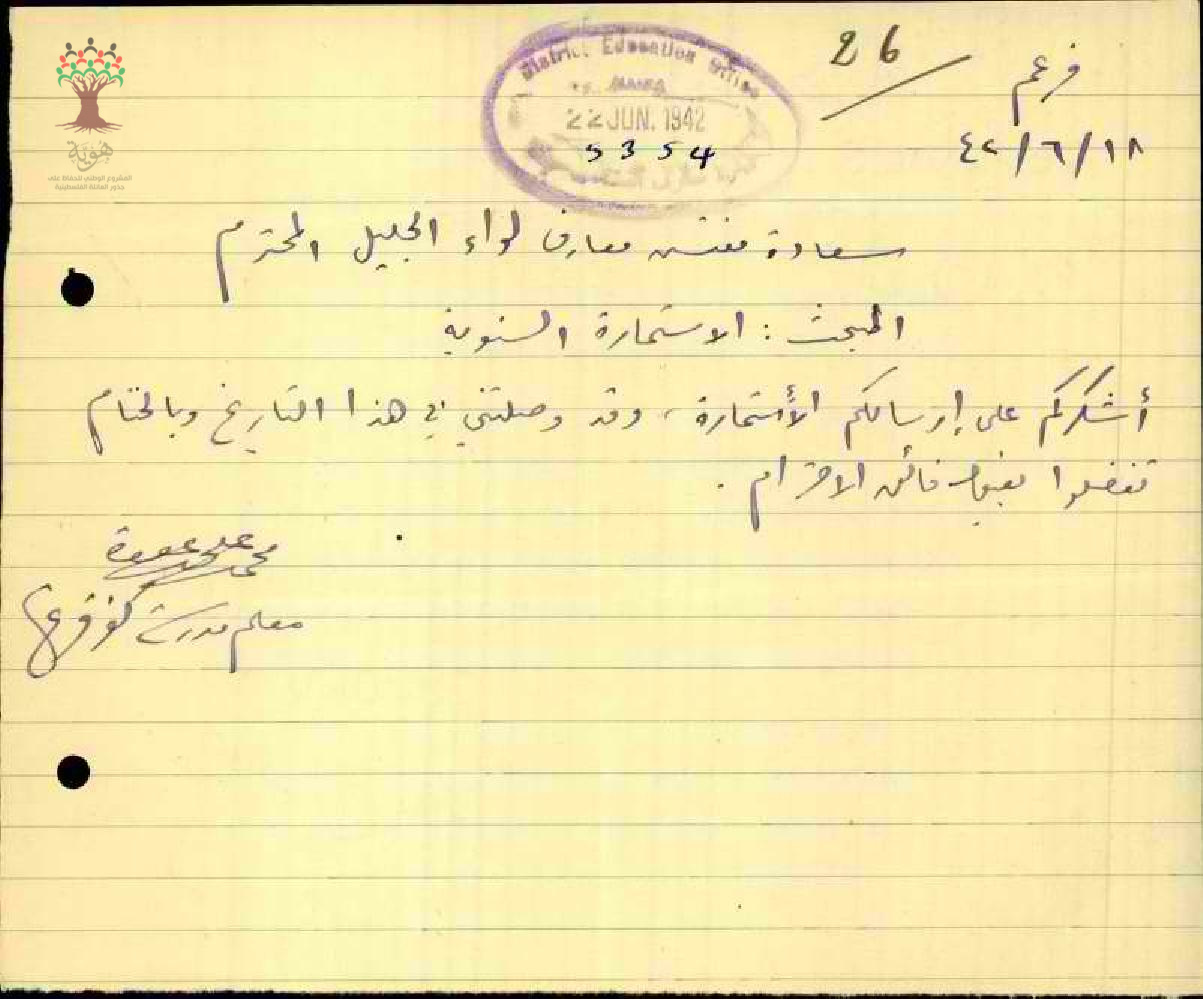 26
فرعم
٤٢/٦/١٨
District Education Office
HAIFA
22 JUN. 1942
5354
هوية
المشروع الوطني للحفاظ على
جذور العائلة الفلسطينية
سعادة مفتش معارف لواء الجليل المحترم
المبحث : الاستمارة السنوية
أشكركم على إرسالكم الأستمارة ، وقد وصلتني في هذا التاريخ وبالختام
تفضلوا بقبول فائق الاحترام .
محمد علي
معلم مدرسة